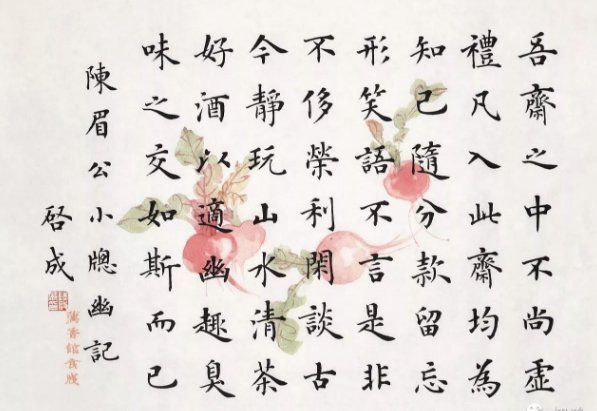 吾齋之中不尚虛
禮凡入此齋均為
知己隨分款留忘
形笑語不言是非
不侈榮利閑談古
今靜玩山水清茶
好酒以適幽趣臭
味之交如斯而已
陳眉公小牕幽記
啓成